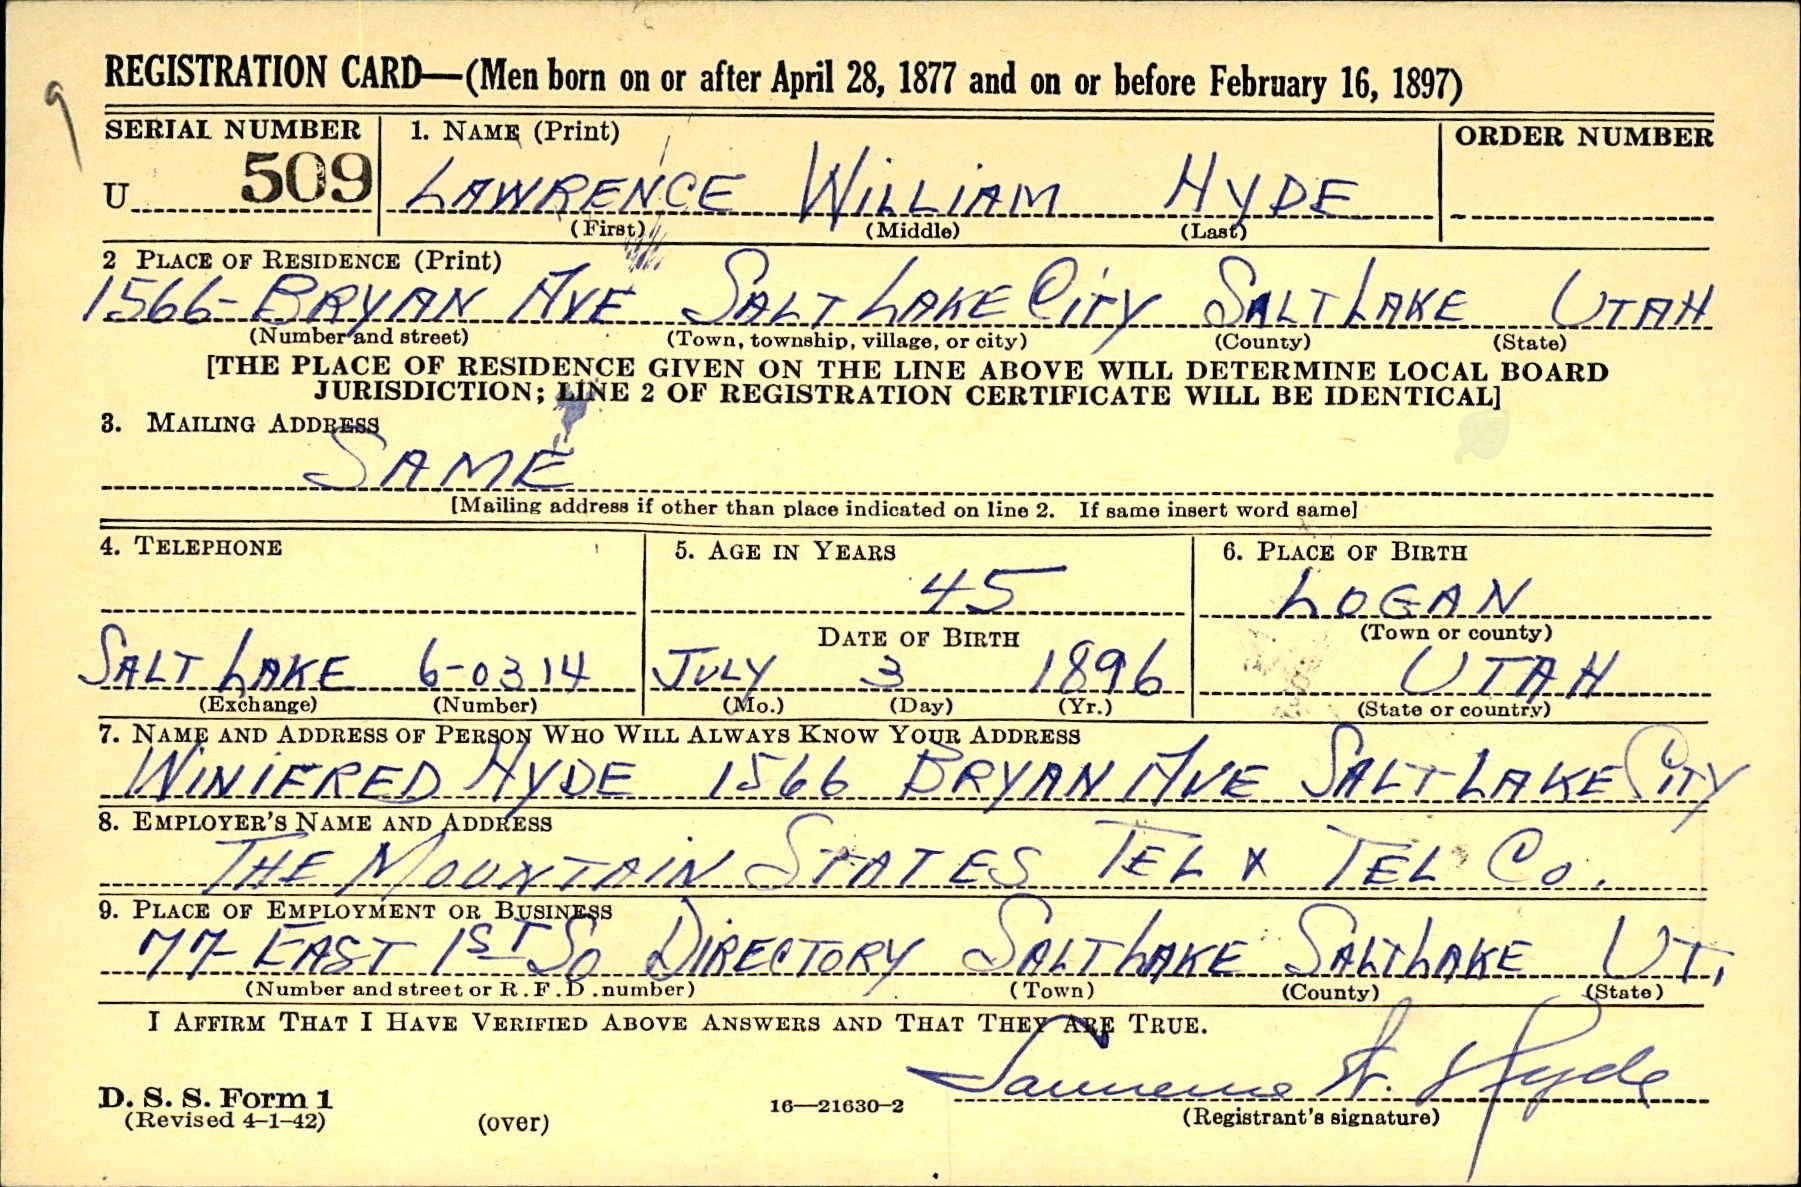 REGISTRATION CARD—(Men born on or after April 28, 1877 and on or before February 16, 1897)
9
SERIAL NUMBER 1. NAME (Print) ORDER NUMBER
U 509 LAWRENCE WILLIAM HYDE
(First) (Middle) (Last)
2 PLACE OF RESIDENCE (Print)
1566- BRYAN AVE SALT LAKE CITY SALT LAKE UTAH
(Number and street) (Town, township, village, or city) (County) (State)
[THE PLACE OF RESIDENCE GIVEN ON THE LINE ABOVE WILL DETERMINE LOCAL BOARD
JURISDICTION; LINE 2 OF REGISTRATION CERTIFICATE WILL BE IDENTICAL]
3. MAILING ADDRESS
SAME
[Mailing address if other than place indicated on line 2. If same insert word same]
4. TELEPHONE 5. AGE IN YEARS 6. PLACE OF BIRTH
45 LOGAN
DATE OF BIRTH (Town or county)
SALT LAKE 6-0314 JULY 3 1896 UTAH
(Exchange) (Number) (Mo.) (Day) (Yr.) (State or country)
7. NAME AND ADDRESS OF PERSON WHO WILL ALWAYS KNOW YOUR ADDRESS
WINIFRED HYDE 1566 BRYAN AVE SALT LAKE CITY
8. EMPLOYER'S NAME AND ADDRESS
THE MOUNTAIN STATES TEL & TEL CO.
9. PLACE OF EMPLOYMENT OR BUSINESS
77 EAST 1ST SO DIRECTORY SALT LAKE SALT LAKE UT.
(Number and street or R.F.D. number) (Town) (County) (State)
I AFFIRM THAT I HAVE VERIFIED ABOVE ANSWERS AND THAT THEY ARE TRUE.
Lawrence W. Hyde
D. S. S. Form 1
(Revised 4-1-42) (over) 16—21630-2 (Registrant's signature)